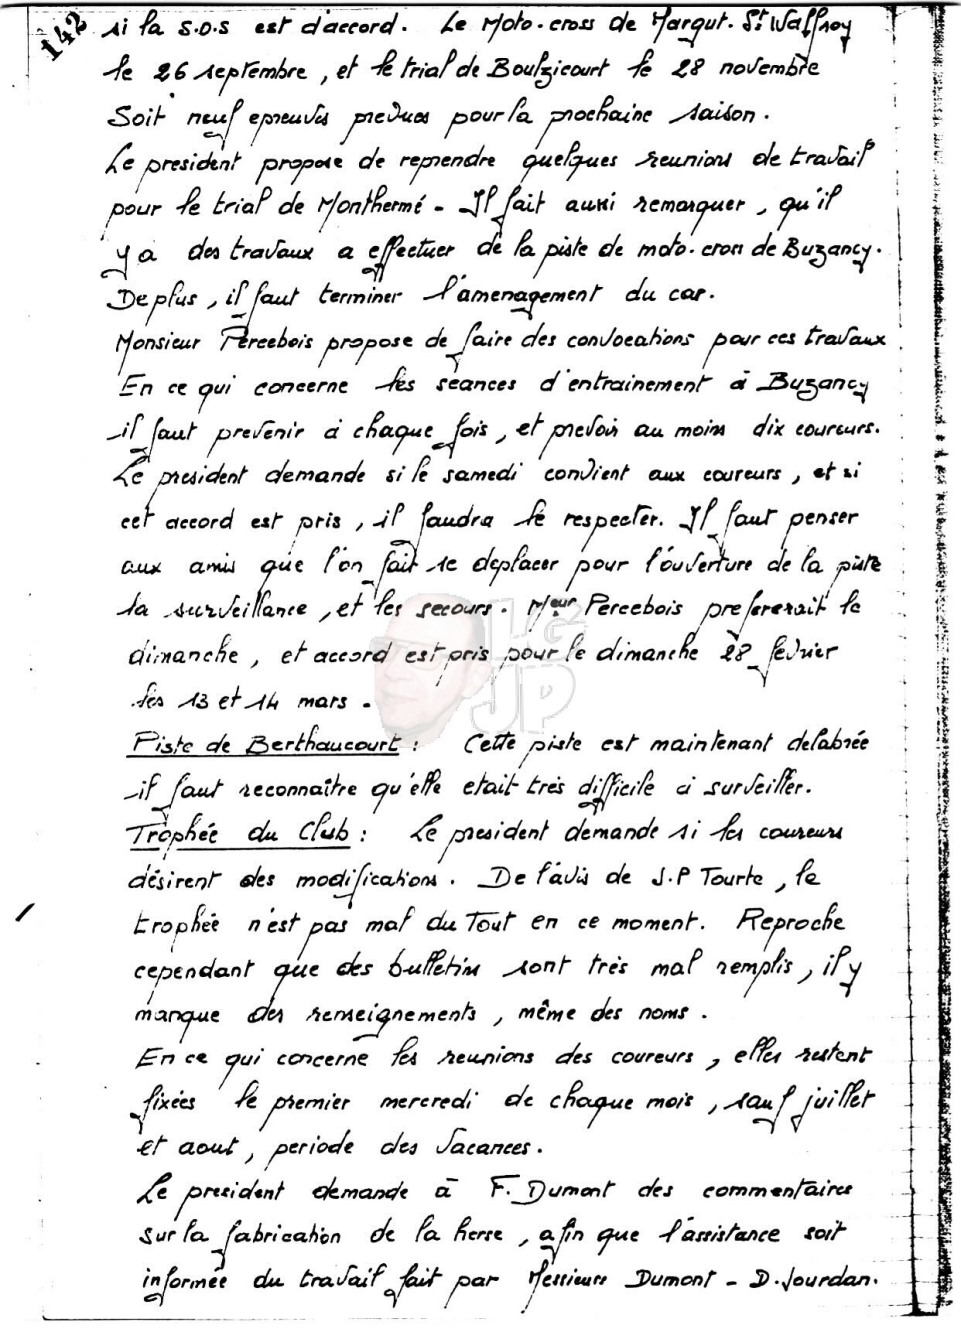 142
si la S.D.S est d'accord. Le Moto-cross de Margut. St Walfroy
le 26 septembre, et le trial de Boulzicourt le 28 novembre
Soit neuf epreuves prevues pour la prochaine saison.
Le president propose de reprendre quelques reunions de travail
pour le trial de Monthermé - Il fait aussi remarquer, qu'il
y a des travaux a effectuer de la piste de moto-cross de Buzancy.
De plus, il faut terminer l'amenagement du car.
Monsieur Percebois propose de faire des convocations pour ces travaux.
En ce qui concerne les séances d'entrainement à Buzancy
il faut prevenir à chaque fois, et prevoir au moins dix coureurs.
Le president demande si le samedi convient aux coureurs, et si
cet accord est pris, il faudra le respecter. Il faut penser
aux amis que l'on fait se deplacer pour l'ouverture de la piste
la surveillance, et les secours. Meur Percebois prefererait le
dimanche, et accord est pris pour le dimanche 28 fevrier
les 13 et 14 mars.
LG
JP
Piste de Berthaucourt : Cette piste est maintenant delabrée
il faut reconnaître qu'elle etait très difficile à surveiller.
Trophée du Club : Le president demande si les coureurs
désirent des modifications. De l'avis de J.P Tourte, le
trophée n'est pas mal du Tout en ce moment. Reproche
cependant que des bulletins sont très mal remplis, il y
manque des renseignements, même des noms.
En ce qui concerne les reunions des coureurs, elles restent
fixées le premier mercredi de chaque mois, sauf juillet
et aout, periode des vacances.
Le president demande à F. Dumont des commentaires
sur la fabrication de la herse, afin que l'assistance soit
informée du travail fait par Messieurs Dumont - D. Jourdan.